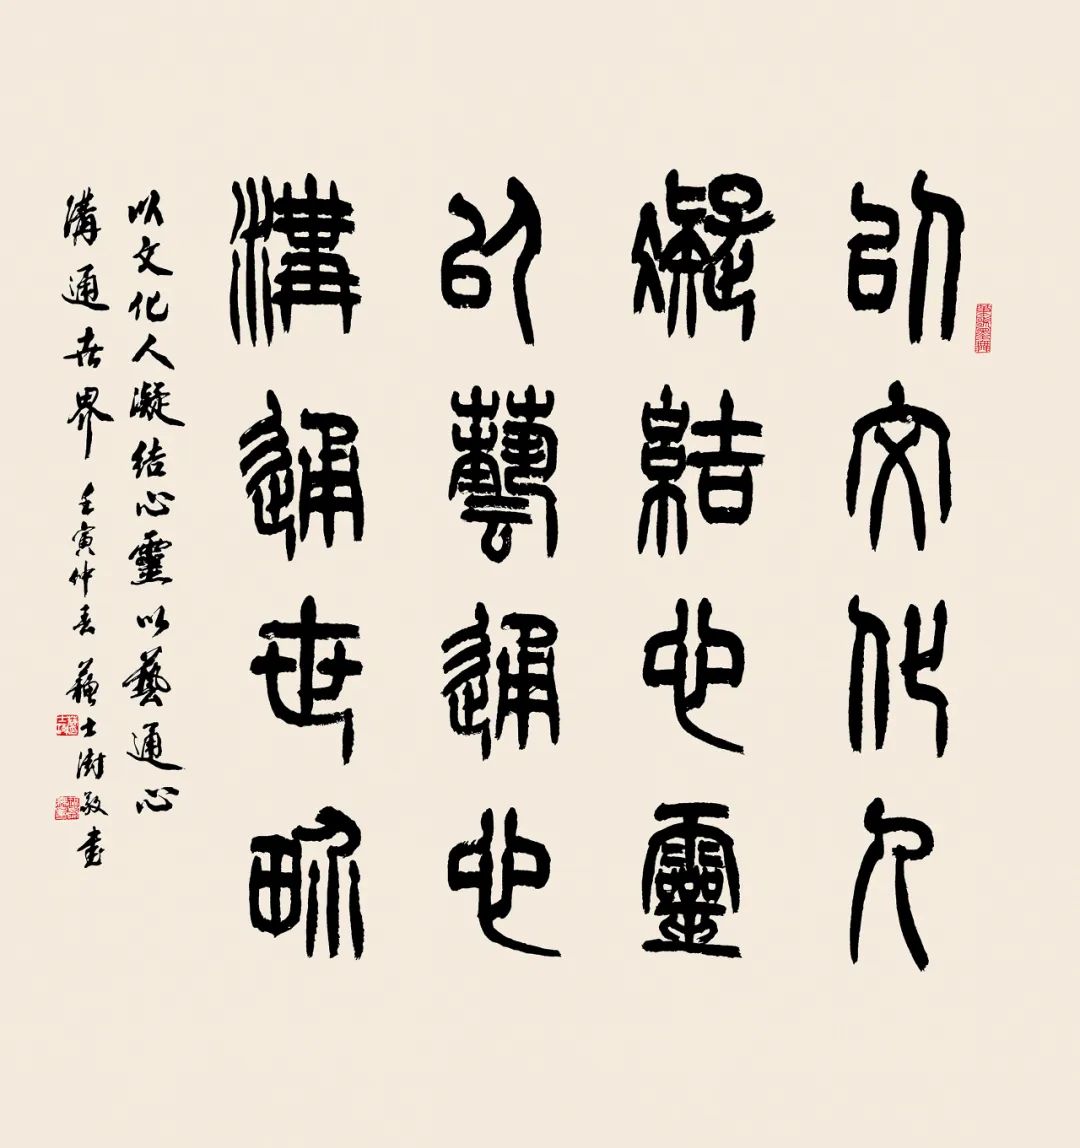 以文化人
凝結心靈
以藝通心
溝通世界
以文化人凝结心靈以藝通心
溝通世界 壬寅仲春 蘇士澍敬书